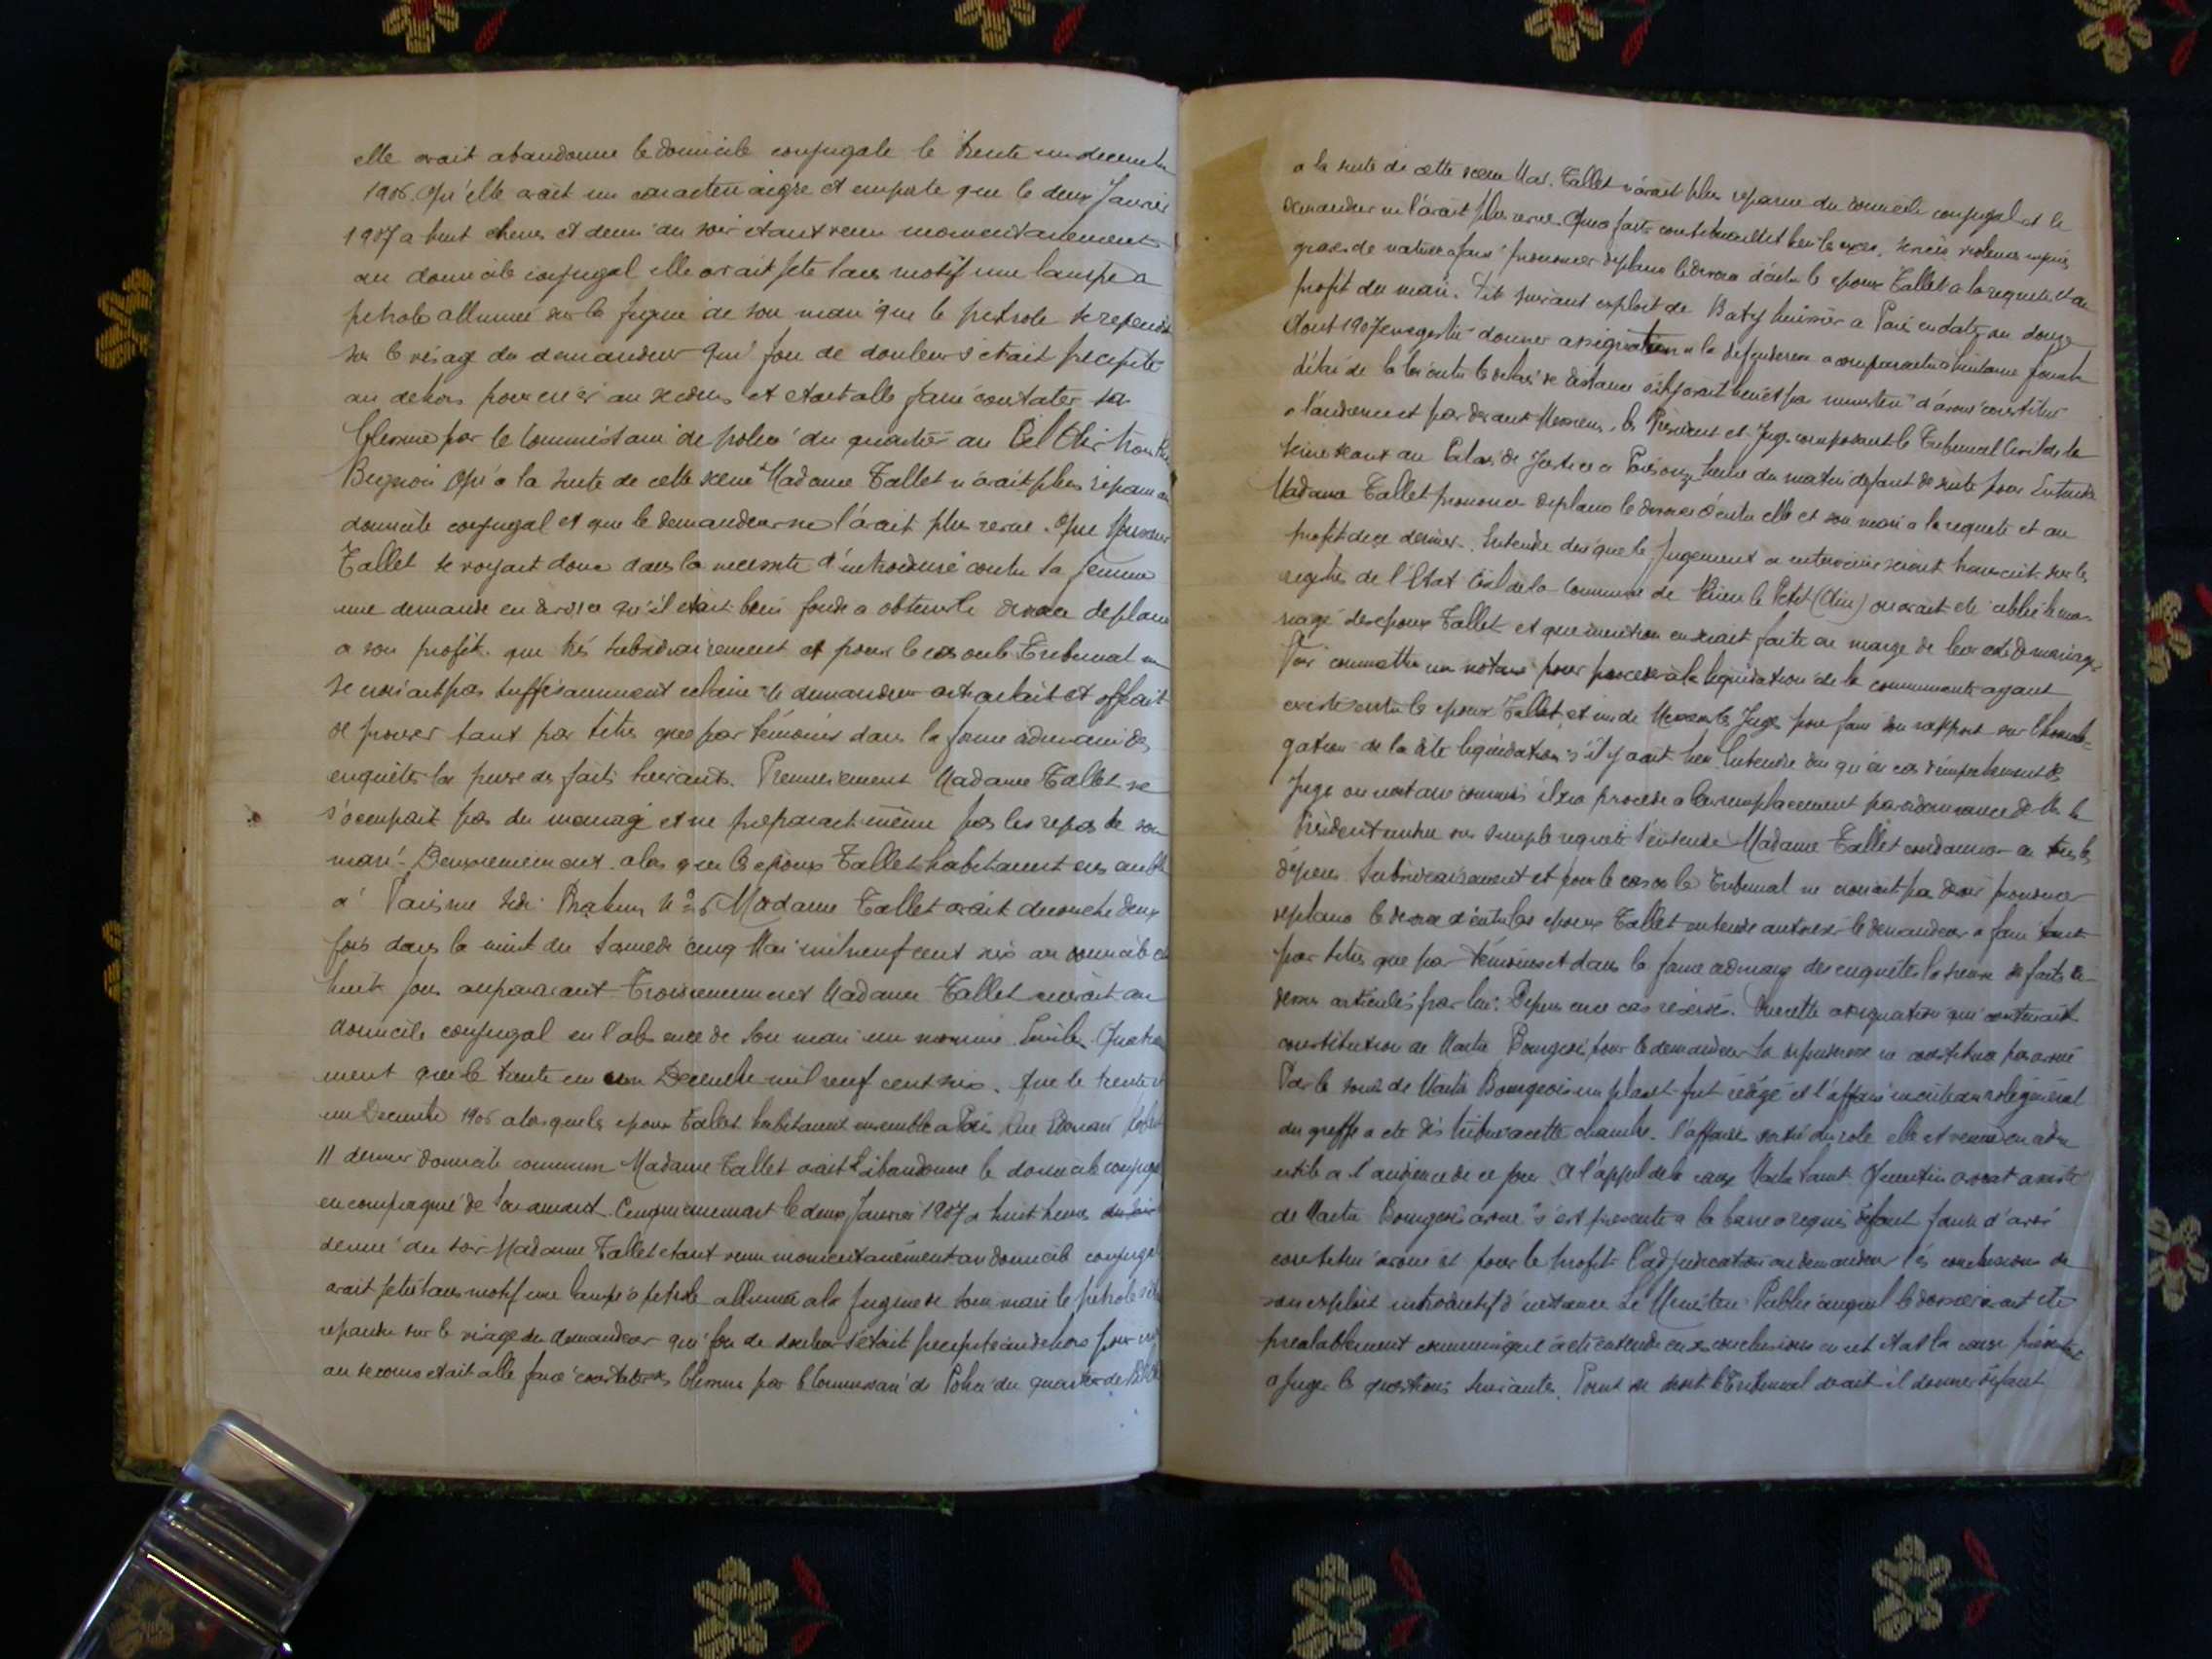 elle avait abandonne le domicile conjugale le trente un decembre
1906. Qu'elle avait un caractere aigre et emporte que le deux Janvier
1907 a huit heures et demi du soir etant venu momentanement
au domicile conjugal elle avait jete sans motif une lampe a
petrole allumee sur la figure de son mari que le petrole se repandit
sur le visage du demandeur qui fou de douleur s'etait precipite
au dehors pour crier au secours et etait alle faire constater sa
blessure par le Commissaire de police du quartier au
que a la suite de cette scene Madame Tallet n'avait plus reparu au
domicile conjugal et que le demandeur ne l'avait plus revue. Que Monsieur
Tallet se voyait donc dans la necessite d'introduire contre sa femme
une demande en divorce qu'il etait bien fonde a obtenir le divorce de plano
a son profit. que tres subsidiairement et pour le cas ou le Tribunal ne
se croirait pas suffisamment eclaire le demandeur articulait et offrait
de prouver tant par titres que par témoins dans la forme ordinaire des
enquêtes la preuve des faits suivants. Premierement Madame Tallet ne
s'occupait pas du menage et ne preparait même pas les repas de son
mari. Deuxiemement alors que les epoux Tallet habitaient
a Paris rue Nº 26 Madame Tallet avait decouche deux
fois dans la nuit du Samedi cinq Mai mil neuf cent six au domicile et
huit jours auparavant Troisiemement Madame Tallet recevait au
domicile conjugal en l'absence de son mari un nomme Emile
ment que le trente un Decembre mil neuf cent six. que le trente
un Decembre 1906 alors que les epoux Tallet habitaient ensemble a Paris Rue
11 dernier domicile commun Madame Tallet avait abandonne le domicile conjugal
en compagnie de son amant. Cinquiemement le deux Janvier 1907 a huit heures du soir
demie du soir Madame Tallet etant venu momentanément au domicile conjugal
avait jete sans motif une lampe a petrole allumee a la figure de son mari le petrole
repandu sur le visage du demandeur qui fou de douleur s'etait precipite au dehors pour
au secours etait alle faire constater blessure par le Commissaire de Police du quartier de
a la suite de cette scene Mad. Tallet n'avait plus reparu au domicile conjugal et le
demandeur ne l'avait plus revue. Que ces faits constituaient bien les exces, sevices violences injures
graves de nature a faire prononcer de plano le divorce d'entre les epoux Tallet a la requete et au
profit du mari. Et suivant exploit de Baty huissier a Paris en date du douze
Aout 1907 enregistre donner assignation a la defenderesse a comparaitre a huitaine franche
délai de la loi outre le delai de distance s'il y avait lieu et par ministere d'avoue constitue
a l'audience et par devant Messieurs les President et Juges composant le Tribunal Civil de la
Seine seant au Palais de Justice a Paris onze heures du matin defaut de suite pour Entendre
Madame Tallet prononcer de plano le divorce d'entre elle et son mari a la requete et au
profit de ce dernier. Entendre dire que le Jugement a intervenir serait transcrit sur les
registres de l'Etat Civil de la Commune de Rieux le Petit (Ain) ou avait ete celebre le ma-
riage des epoux Tallet et que mention en serait faite en marge de leur acte de mariage.
Voir commettre un notaire pour proceder a la liquidation de la communaute ayant
existe entre les epoux Tallet, et un de Messieurs les Juges pour faire son rapport sur l'homolo-
gation de la dite liquidation s'il y avait lieu. Entendre dire qu'en cas d'empechement des
Juge ou notaire commis il sera procede a leur remplacement par ordonnance de M. le
President rendue sur simple requete S'entendre Madame Tallet condamner en tous les
depens Subsidiairement et pour le cas ou le Tribunal ne croirait pas devoir prononcer
de plano le divorce d'entre les epoux Tallet entendre autoriser le demandeur a faire tant
par titres que par témoins et dans la forme ordinaire des enquêtes la preuve des faits ci-
dessus articules par lui. Depens en ce cas reserves. Sur cette assignation qui contenait
constitution de Maitre Bourgeois pour le demandeur la defenderesse n'a constitue pas avoue
Par les soins de Maitre Bourgeois un placet fut redige et l'affaire inscrite au role general
du greffe a ete distribuee a cette chambre. l'affaire sortie du role elle est venue en ordre
utile a l'audience de ce jour. A l'appel de la cause Maitre Saint Quentin avocat assiste
de Maitre Bourgeois avoue s'est presente a la barre a requis defaut faute d'avoir
constitue avoue et pour le profit l'adjudication au demandeur les conclusions de
son exploit introductif d'instance Le Ministere Public auquel le dossier avait ete
prealablement communique a ete entendu en ses conclusions en cet etat la cause presentait
a juger les questions suivantes. Point de droit le Tribunal devait il donner defaut